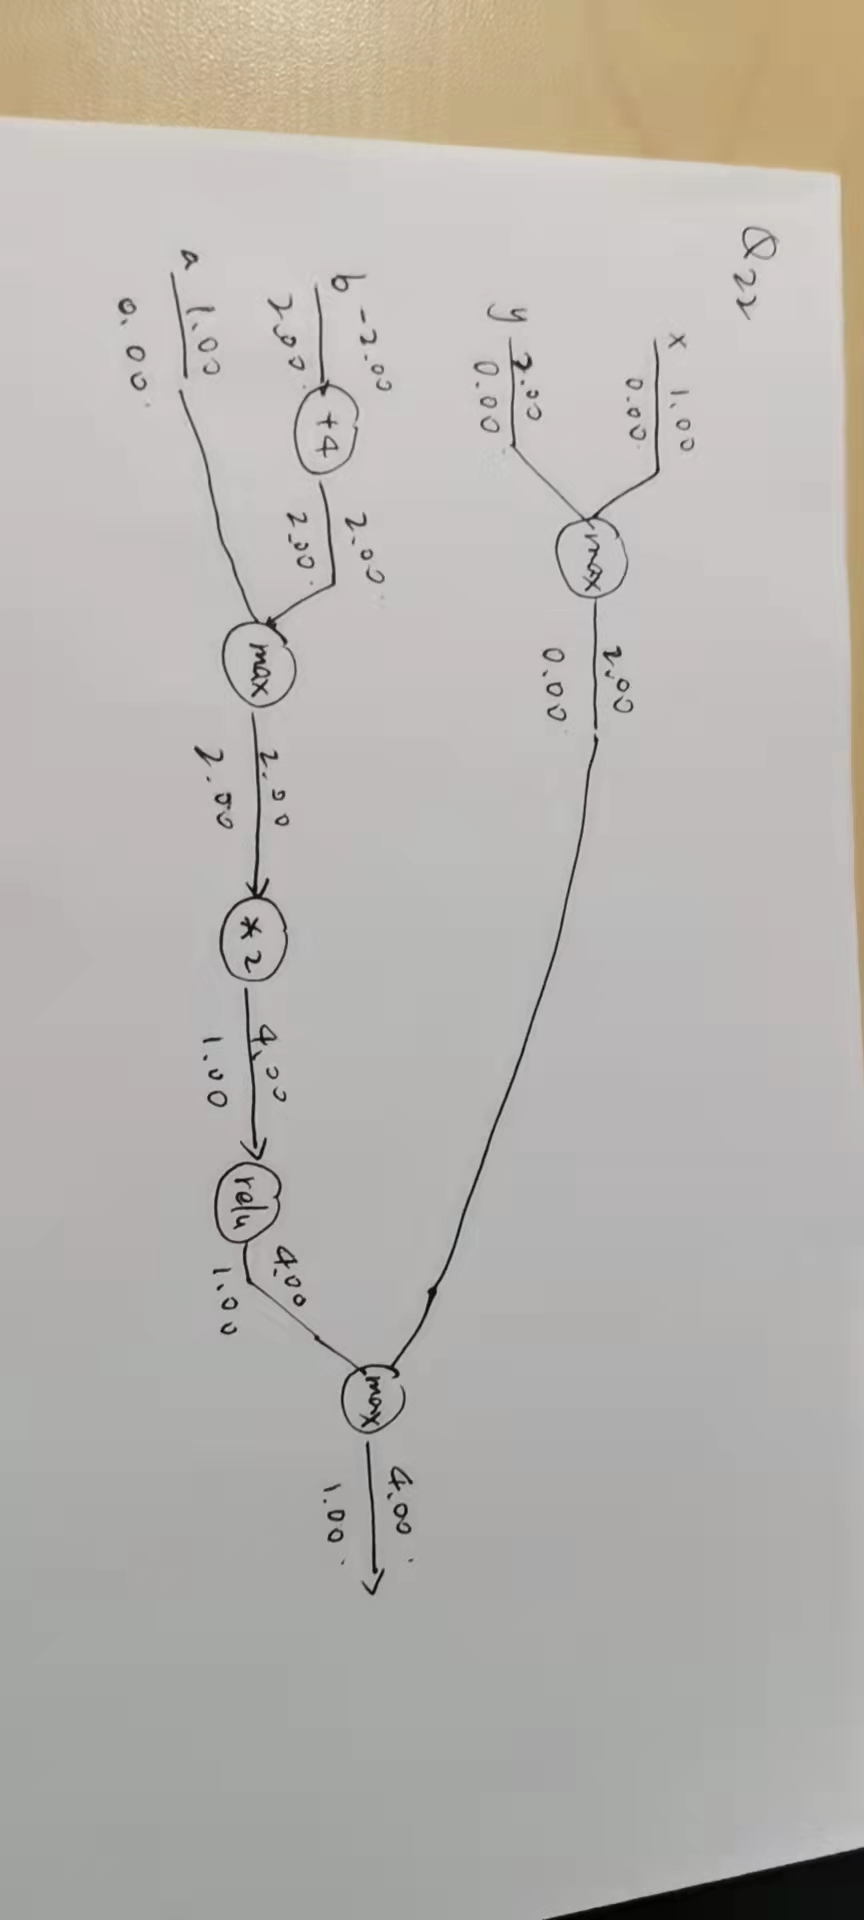 Q22
x 1.00
0.00
y 2.00
0.00
max
2.00
0.00
b -2.00
2.00
+4
2.00
2.00
a 1.00
0.00
max
2.00
2.00
*2
4.00
1.00
relu
4.00
1.00
max
4.00
1.00